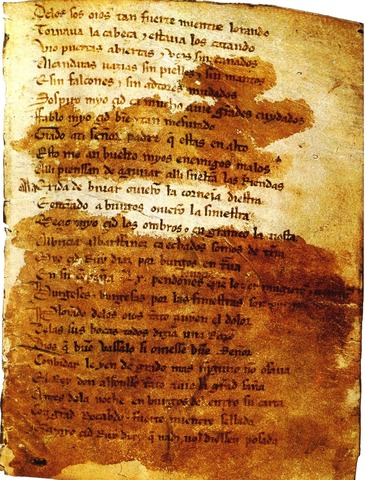 Delos sos oios tan fuerte mientre lorando
Tornaua la cabeça ⁊ estaua los catando
Vio puertas abiertas ⁊ vços sin cañados
Alcandaras uazias sin pielles ⁊ sin mantos
E sin falcones ⁊ sin adtores mudados
Sospiro myo çid ca mucho auie grandes cuydados
Fablo myo çid bien ⁊ tan mesurado
Grado ati señor padre q̃ estas en alto
Esto me an buelto myos enemigos malos
Alli pienssan de aguijar alli sueltan las Riendas
Ala exida de biuar ouierõ la corneia diestra
E entrãdo a burgos ouierõ la siniestra
Meçio myo çid los ombros ⁊ en grameo la tiesta
Albriçia albarffanez ca echados somos de tr̃ra
Myo çid Ruy diaz por burgos en traua
En su conpaña .Lx. pendones
Burgeses ⁊ burgesas por las finiestras son
Plorando delos oios tãto auien el dolor
Delas sus bocas todos dizian una Razõ
Dios q̃ buẽ vassalo si ouiesse buẽ Señor
Conbidar le yen de grado mas ninguno no osaua
El Rey don alfonsso tãto auie la grãd saña
Antes dela noche en burgos del entro su carta
Con grãd Recabdo ⁊ fuerte mientre sellada
Que a myo çid Ruy diaz q̃ nadi nol diessen posada